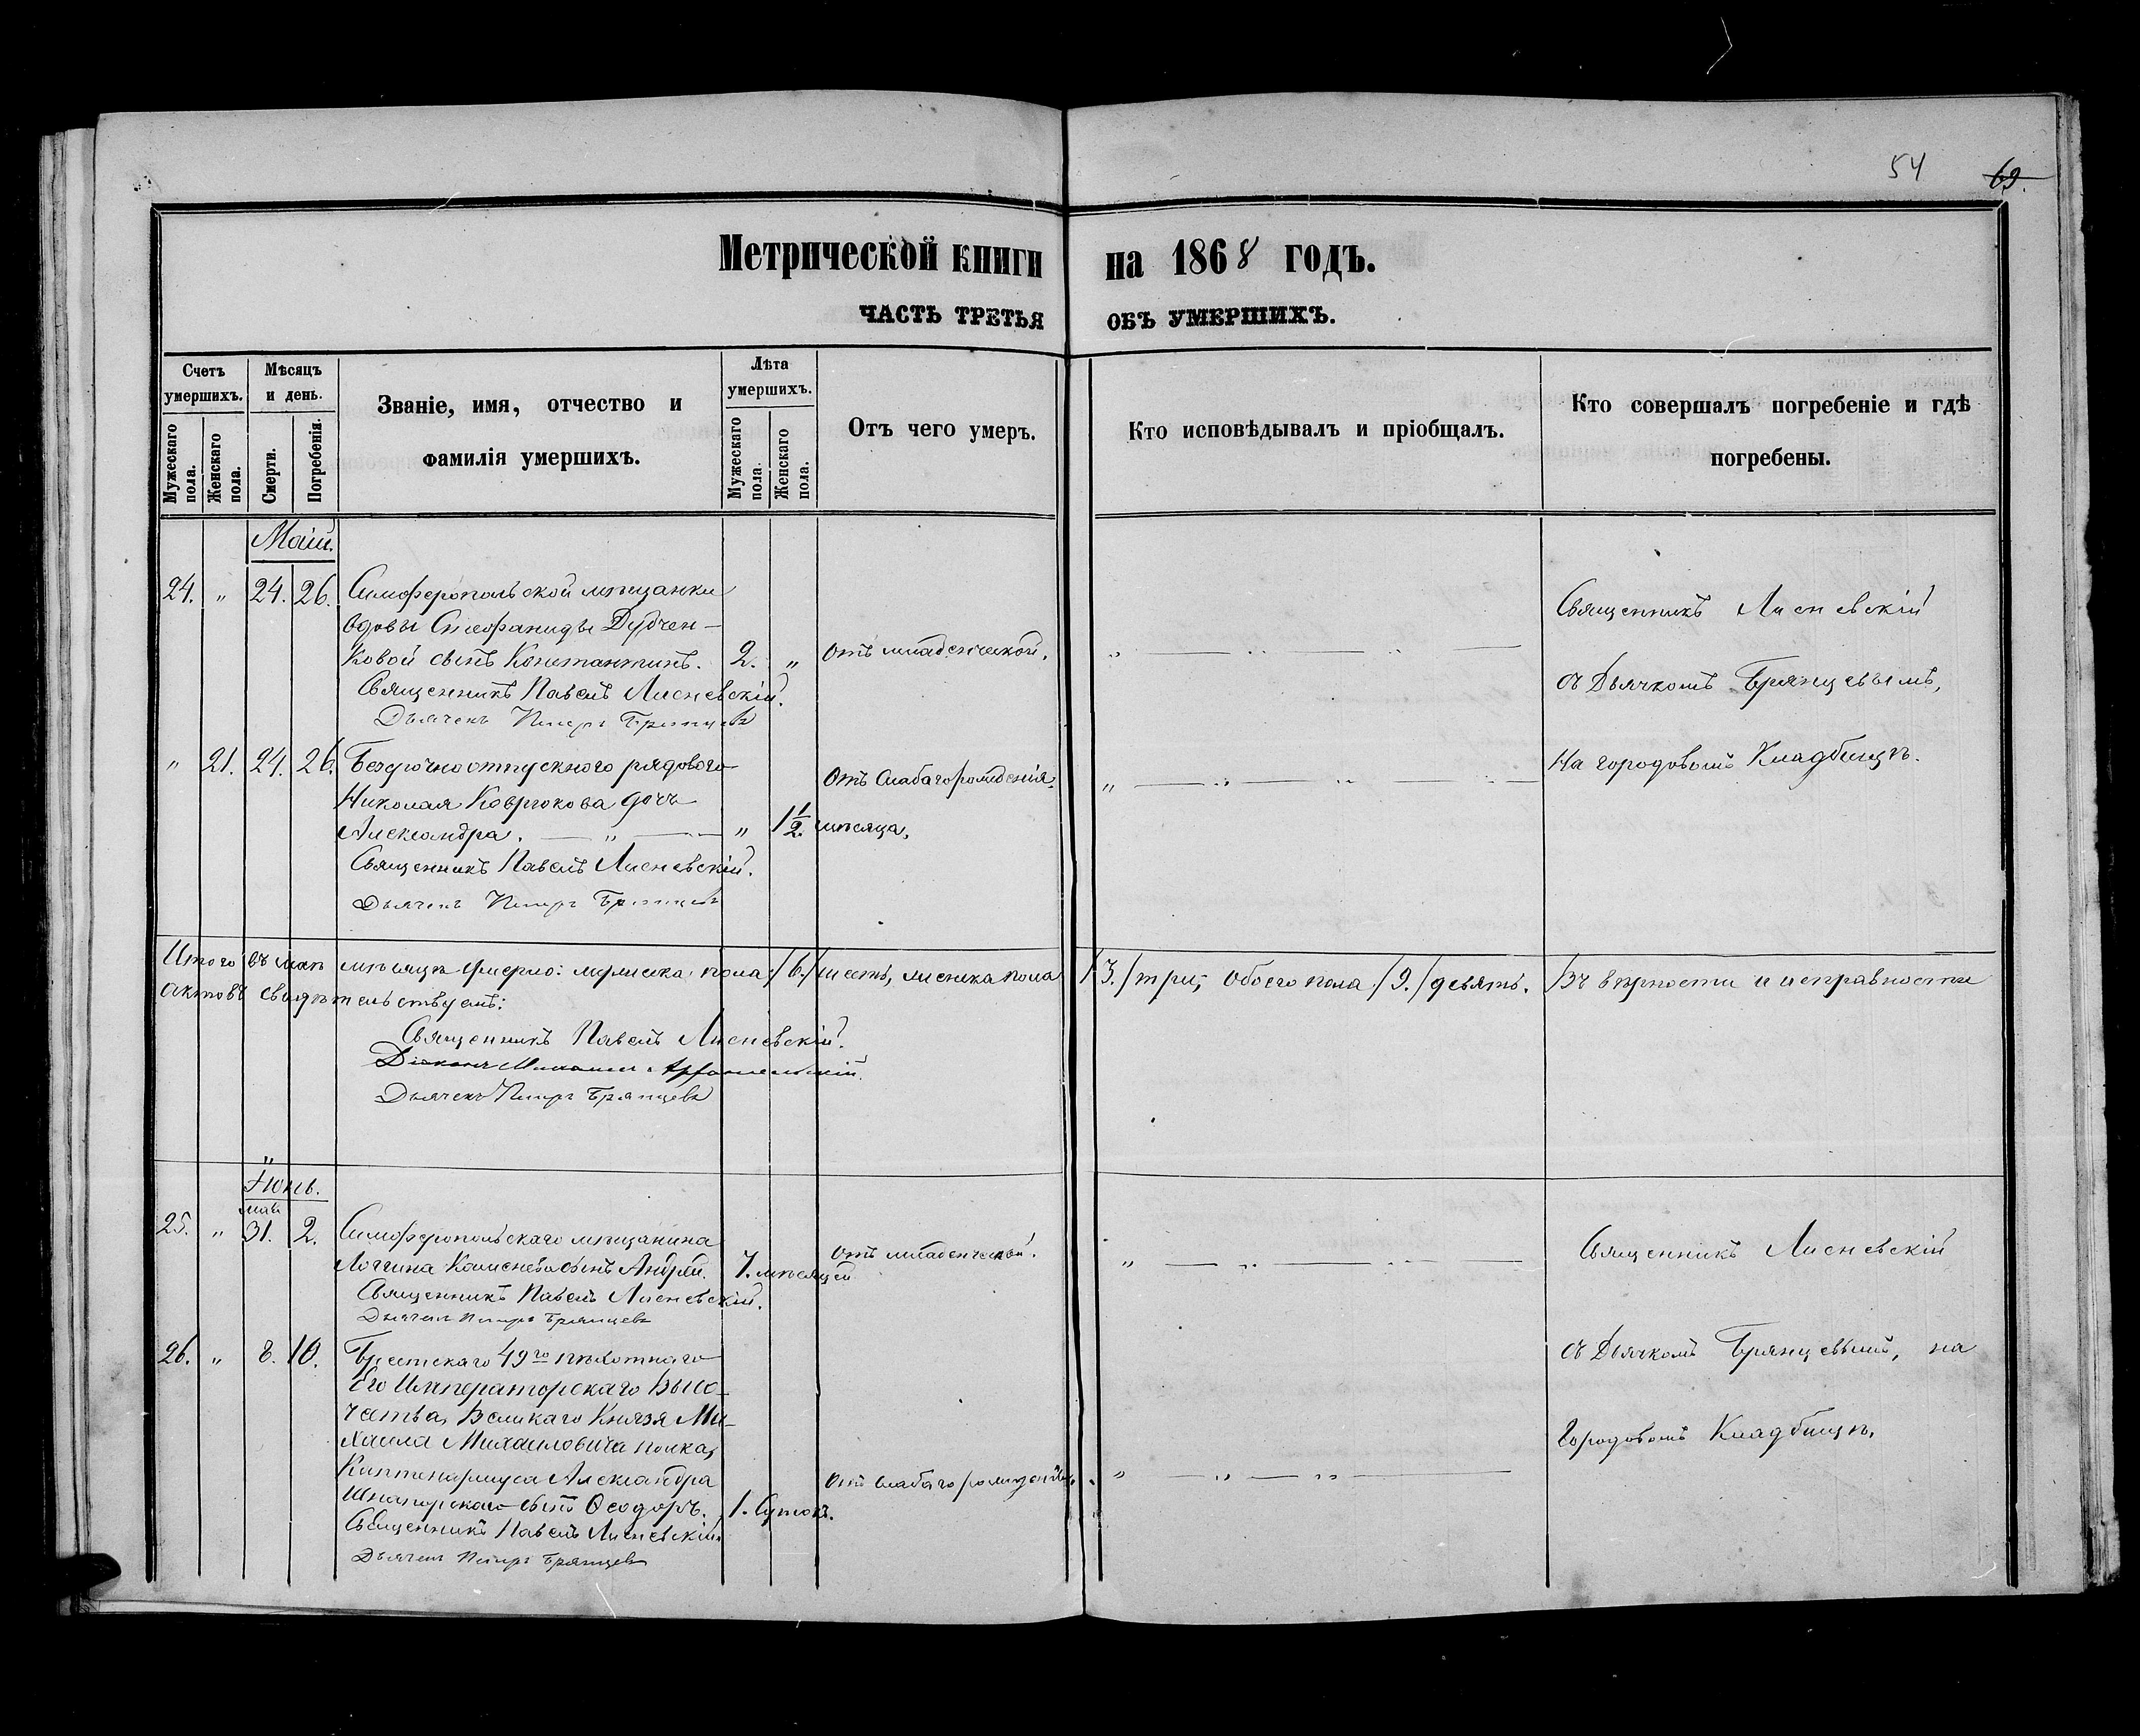 54 69.
Метрической книги на 1868 годъ.
ЧАСТЬ ТРЕТЬЯ ОБЪ УМЕРШИХЪ.
Счетъ умершихъ.
Мужескаго пола.
Женскаго пола.
Мѣсяцъ и день.
Смерти.
Погребенія.
Званіе, имя, отчество и
фамилія умершихъ.
Лѣта умершихъ.
Мужескаго пола.
Женскаго пола.
Отъ чего умеръ.
Кто исповѣдывалъ и пріобщалъ.
Кто совершалъ погребеніе и гдѣ
погребены.
Маій.
24. " 24. 26. Симферопольской мѣщанки
вдовы Стефаниды Дубчен-
ковой сынъ Константинъ. 2. " Отъ младенческой.
Священникъ Павелъ Лисневскій.
Дьячекъ Петръ Брянцевъ
Священникъ Лисневскій
съ Дьячкомъ Брянцевымъ,
На городовомъ Кладбищѣ.
" 21. 24. 26. Безсрочноотпускного рядового
Николая Коврюкова дочь
Александра. " " 1 1/2 мѣсяца. Отъ слабаго рожденія.
Священникъ Павелъ Лисневскій.
Дьячекъ Петръ Брянцевъ
Итого въ маѣ мѣсяцѣ умерло: мужеска пола /6./ шесть, женска пола /3./ три, обоего пола /9./ девять. Въ вѣрности и исправности
актовъ свидѣтельствуемъ:
Священникъ Павелъ Лисневскій.
Діаконъ Михаилъ
Дьячекъ Петръ Брянцевъ
Іюнь.
мая
25. " 31. 2. Симферопольскаго мѣщанина
Логгина Каменева сынъ Андрей. 7. мѣсяцей Отъ младенческой.
Священникъ Павелъ Лисневскій.
Дьячекъ Петръ Брянцевъ
Священникъ Лисневскій
съ Дьячкомъ Брянцевымъ, на
Городовомъ Кладбищѣ.
26. " 8. 10. Брестскаго 49го пѣхотнаго
Его Императорскаго Высо-
чества, Великаго Князя Ми-
хаила Михаиловича полка,
Каптенармуса Александра
сынъ Ѳеодоръ. 1. Сутокъ. Отъ слабаго рожденія.
Священникъ Павелъ Лисневскій.
Дьячекъ Петръ Брянцевъ